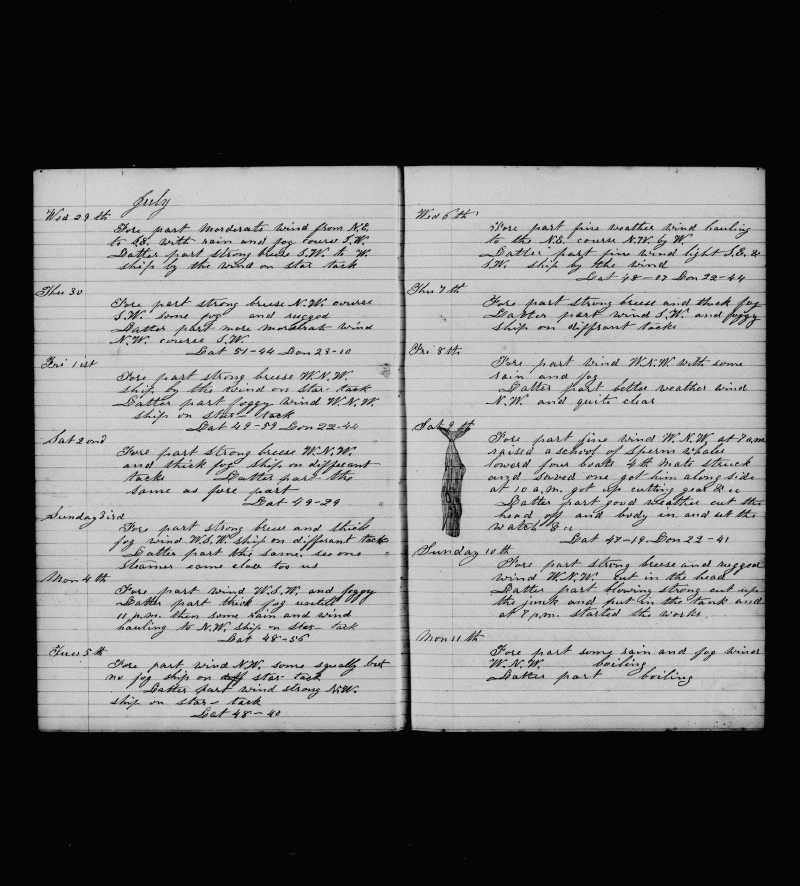 July
Wed 29 th
Fore part morderate wind from N.E.
to S.E. with rain and fog course S.W.
Latter part strong breese S.W. to W.
ship by the wind on star tack
Thu 30
Fore part strong breese N.W. course
S.W. some fog and rugged
Latter part more moderat wind
N.W. course S.W.
Lat 51-44 Lon 23-10
Fri 1 ist
Fore part strong breese W.N.W.
ship by the wind on star- tack
Latter part foggy wind W.N.W.
ship on star- tack
Lat 49-59 Lon 22-44
Sat 2 ond
Fore part strong breese W.N.W.
and thick fog ship on diffeant
tacks Latter part the
same as fore part
Lat 49-29
Sunday 3 ird
Fore part strong breese and thick
fog wind W.S.W. ship on differant tack
Latter part the same, see one
steamer came close too us
Mon 4 th
Fore part wind W.S.W. and foggy
Latter part thick fog untill
11 p.m. then some rain and wind
hauling to N.W. ship on star- tack
Lat 48-56
Tues 5 th
Fore part wind N.W. some squally but
no fog ship on diff star- tack
Latter part wind strong N.W.
ship on star- tack
Lat 48-40
Wed 6 th
Fore part fine weather wind hauling
to the N.E. course N.W. by W.
Latter part fine wind light S.E. &
S.W. ship by the wind
Lat 48-07 Lon 22-44
Thu 7 th
Fore part strong breese and thick fog
Latter part wind S.W. and foggy
ship on diffrant tacks
Fri 8 th
Fore part wind W.N.W. with some
rain and fog
Latter part better weather wind
N.W. and quite clear
Sat 9 st
Fore part fine wind W.N.W. at 7 a.m.
raised a school of sperm whales
lowerd four boats 4th mate struck
and saved one got him along side
at 10 a.m. got up cutting gear & cc
Latter part good weather cut the
head off and body in and set the
watch & cc
Lat 47-19 Lon 22-41
Sunday 10 th
Fore part strong breese and rugged
wind W.N.W. cut in the head
Latter part blowing strong cut up
the junk and put in the tank and
at 7 p.m. started the works.
Mon 11 th
Fore part somg rain and fog wind
W.N.W. boiling
Latter part boiling